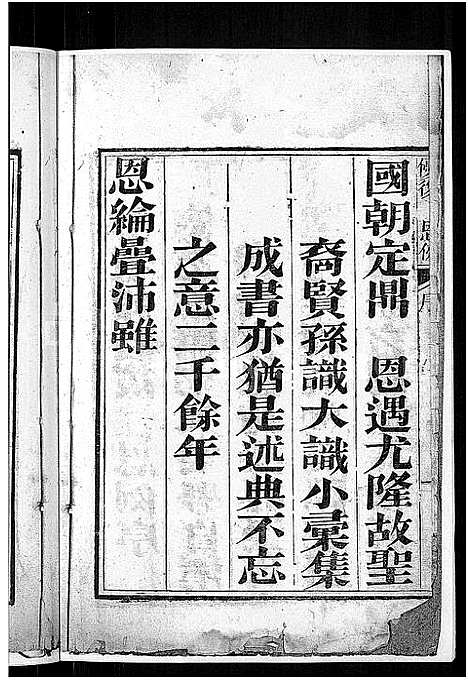 國朝定鼎 恩遇尤隆故聖
裔賢孫識大識小彙集
成書亦猶是述典不忘
之意二千餘年
恩綸疊沛雖